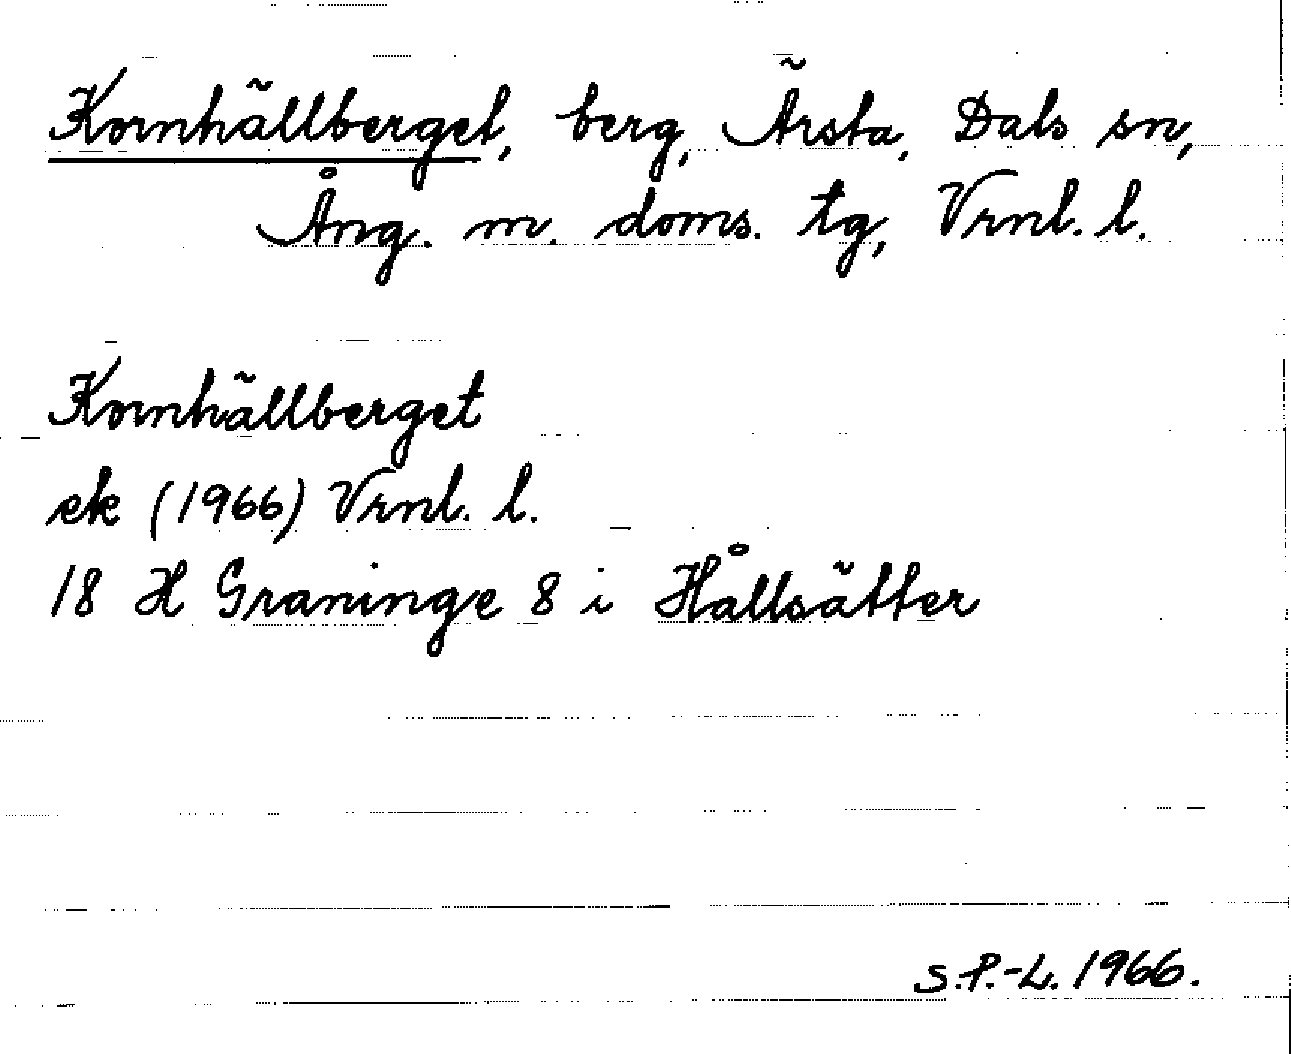 Kornhällberget, berg, Ärsta, Dals sn,
Ång. m. doms. tg, Vrnl. l.
Kornhällberget
ek (1966) Vrnl. l.
18 H Graninge 8 i Hållsätter
S.P.-L. 1966.